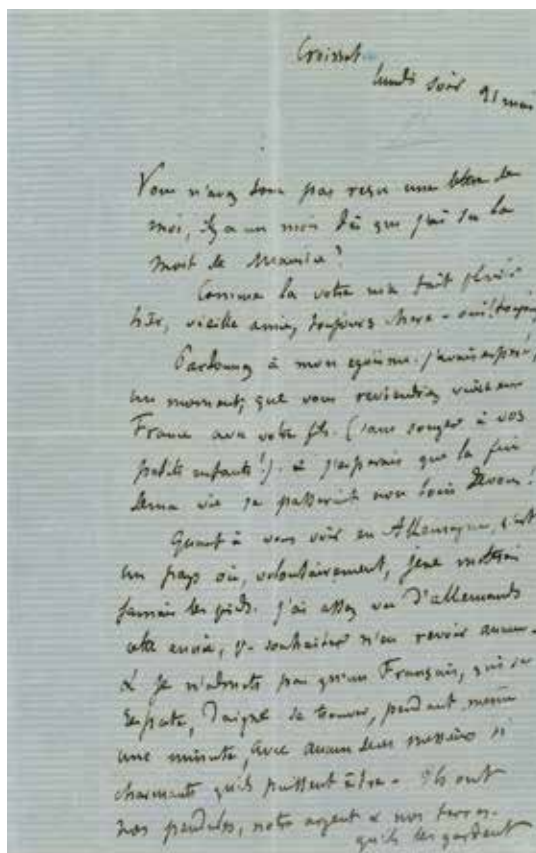 Croisset
lundi soir 21 mai
Vous n'avez donc pas reçu une lettre de
moi, il y a un mois dès que j'ai su la
mort de Maurice?
Comme la votre m'a fait plaisir
hier, vieille amie, toujours chère - oui! toujours
Pardonnez à mon egoïsme. j'avais espéré,
un moment, que vous reviendriez vivre en
France avec votre fils. (sans songer à vos
petits enfants!), & j'esperais que la fin
de ma vie se passerait non loin de vous!
Quant à vous voir en Allemagne, c'est
un pays où, volontairement, je ne mettrai
jamais les pieds. J'ai assez vu d'allemands
cette année, p. souhaiter n'en revoir aucun.
& je n'admets pas qu'un Français, qui se
respecte, daigne se trouver, pendant même
une minute, avec aucun de ces messieurs si
charmants qu'ils puissent être. Ils ont
nos pendules, notre argent & nos terres.
qu'ils les gardent